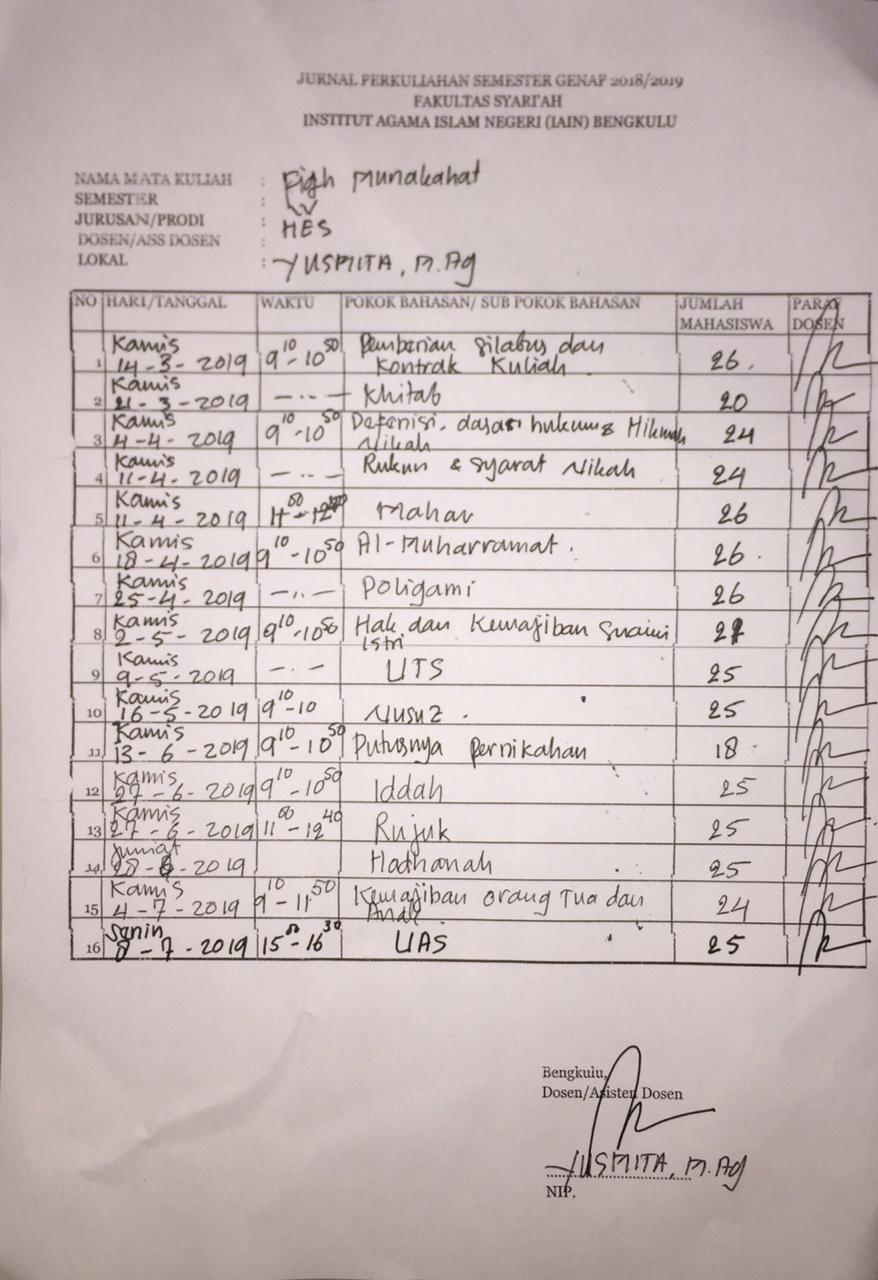 JURNAL PERKULIAHAN SEMESTER GENAP 2018/2019
FAKULTAS SYARI'AH
INSTITUT AGAMA ISLAM NEGERI (IAIN) BENGKULU
NAMA MATA KULIAH : Fiqh Munakahat
SEMESTER : IV
JURUSAN/PRODI : HES
DOSEN/ASS DOSEN :
LOKAL : YUSMITA, M.Ag
NO HARI/TANGGAL WAKTU POKOK BAHASAN/ SUB POKOK BAHASAN JUMLAH MAHASISWA PARAF DOSEN
1 Kamis 14-3-2019 9 10 - 10 50 Pemberian Silabus dan Kontrak Kuliah 26
2 Kamis 21-3-2019 - .. - Khitab 20
3 Kamis 4-4-2019 9 10 - 10 50 Defenisi, dasar hukum & Hikmah Nikah 24
4 Kamis 11-4-2019 - .. - Rukun & Syarat Nikah 24
5 Kamis 11-4-2019 Mahar 26
6 Kamis 18-4-2019 9 10 - 10 50 Al-Muharramat. 26
7 Kamis 25-4-2019 - .. - Poligami 26
8 Kamis 2-5-2019 9 10 - 10 50 Hak dan Kewajiban Suami Istri
9 Kamis 9-5-2019 - .. - UTS 25
10 Kamis 16-5-2019 9 10 - 10 Nusuz. 25
11 Kamis 13-6-2019 9 10 - 10 50 Putusnya Pernikahan 18
12 Kamis 27-6-2019 9 10 - 10 50 Iddah 25
13 Kamis 27-6-2019 11 00 - 12 40 Rujuk 25
14 Jumat 28-6-2019 Hadhanah 25
15 Kamis 4-7-2019 9 10 - 11 50 Kewajiban Orang Tua dan Anak 24
16 Senin 8-7-2019 15 - 16 30 UAS 25
Bengkulu,
Dosen/Asisten Dosen
YUSMITA, M.Ag
NIP.